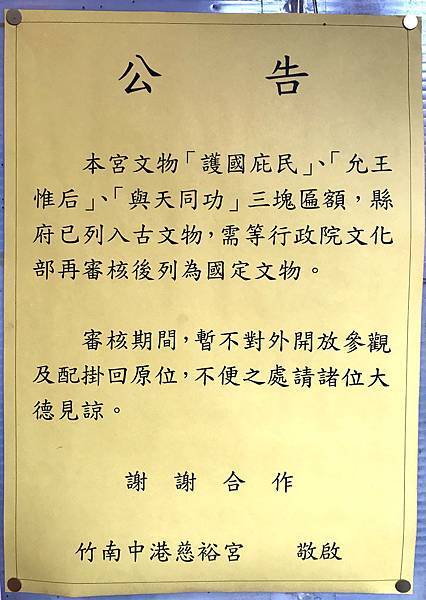 公 告
本宮文物「護國庇民」、「允王
惟后」、「與天同功」三塊匾額，縣
府已列入古文物，需等行政院文化
部再審核後列為國定文物。
審核期間，暫不對外開放參觀
及配掛回原位，不便之處請諸位大
德見諒。
謝 謝 合 作
竹南中港慈裕宮 敬啟